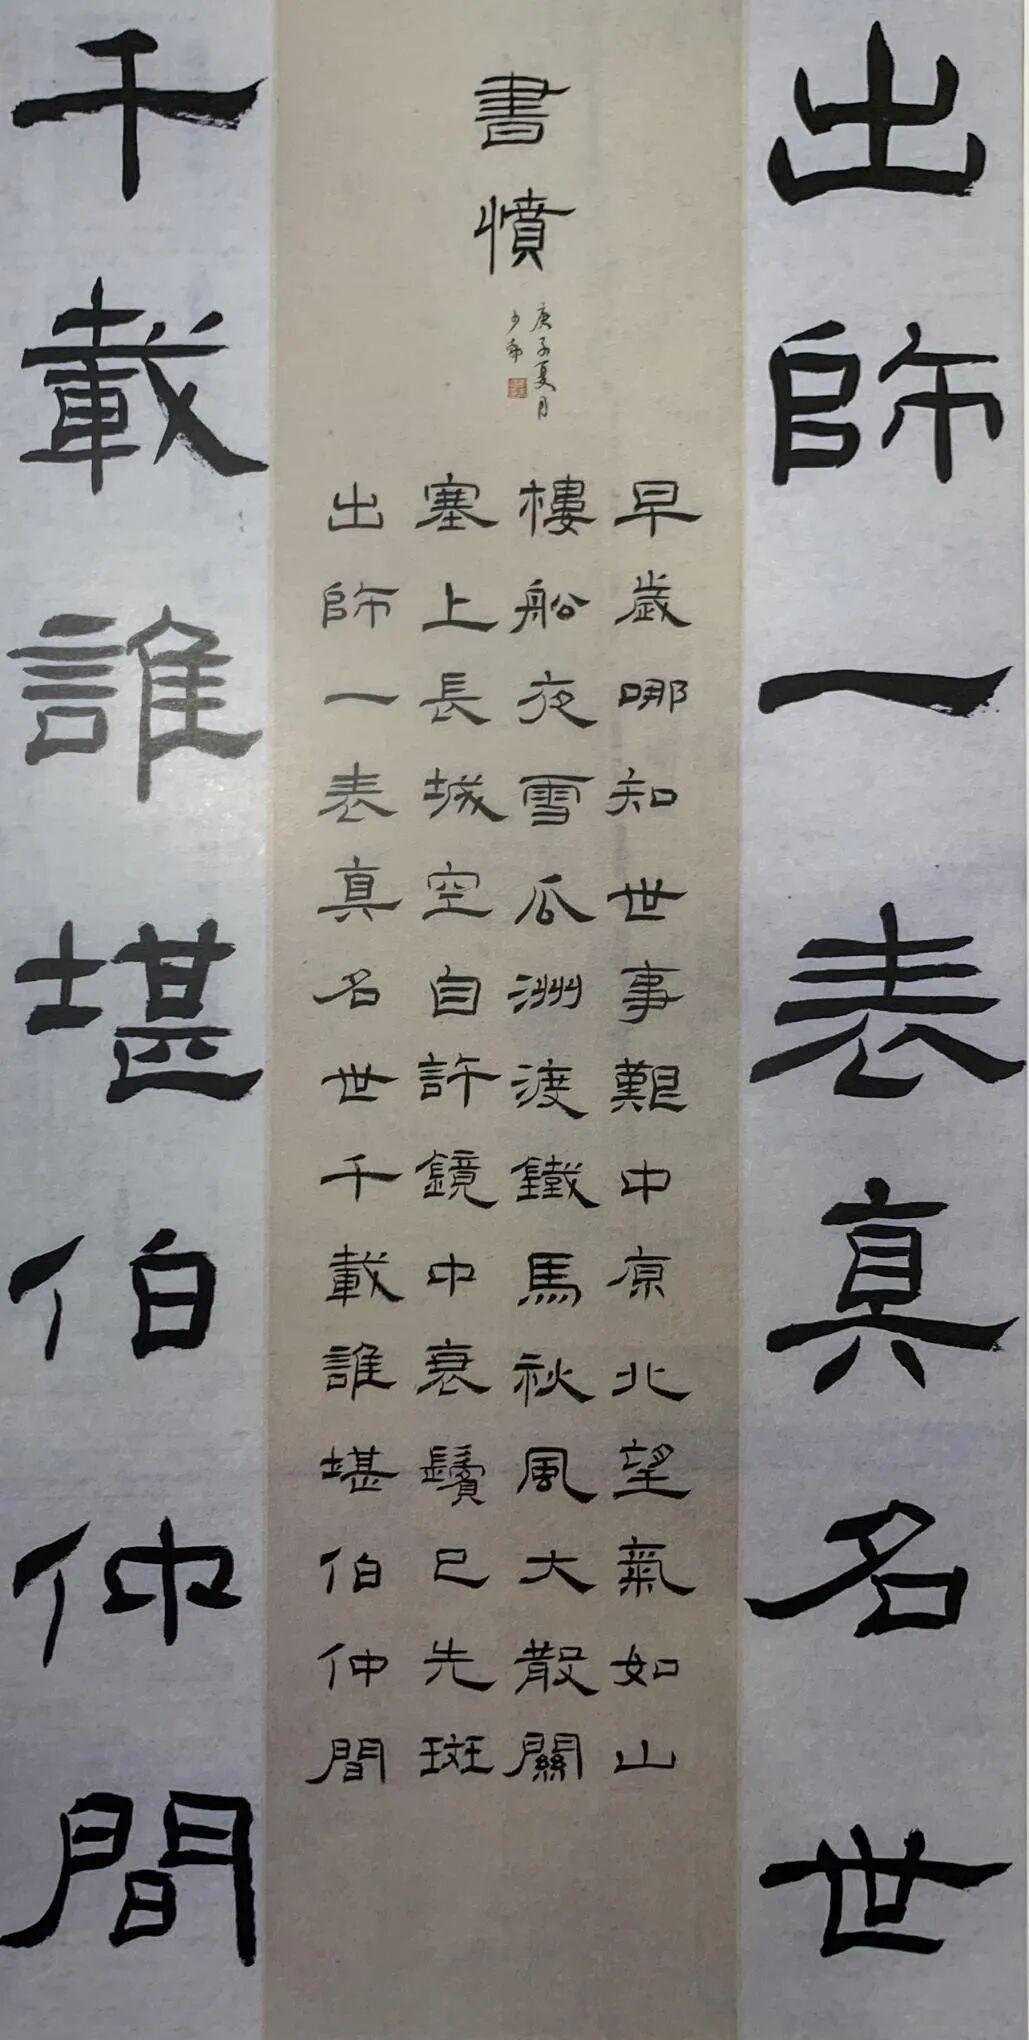 出師一表真名世
書憤
庚子夏月
少
早歲哪知世事艱中原北望氣如山
樓船夜雪瓜洲渡鐵馬秋風大散關
塞上長城空自許鏡中衰鬢已先斑
出師一表真名世千載誰堪伯仲間
千載誰堪伯仲間